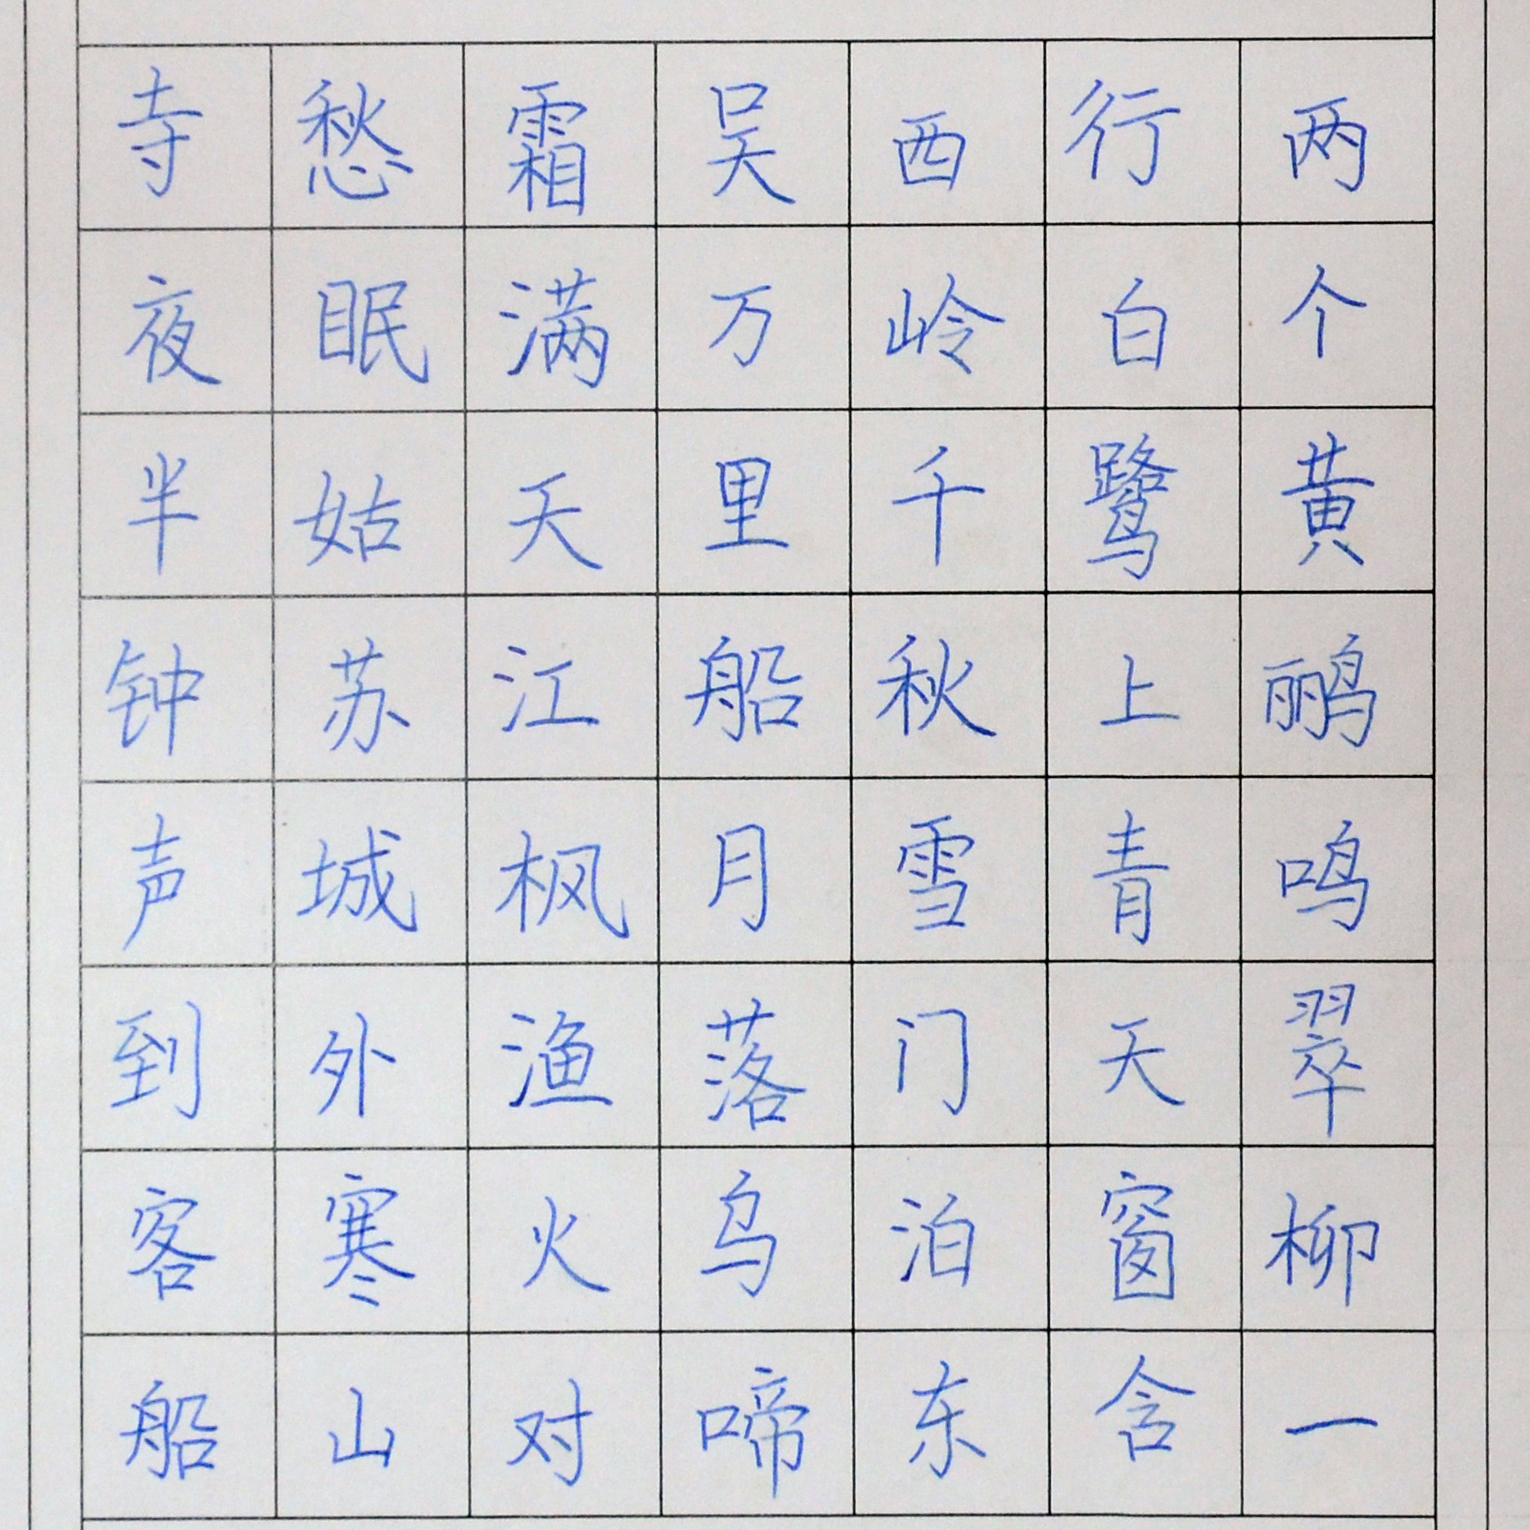 两个黄鹂鸣翠柳一
行白鹭上青天窗含
西岭千秋雪门泊东
吴万里船月落乌啼
霜满天江枫渔火对
愁眠姑苏城外寒山
寺夜半钟声到客船